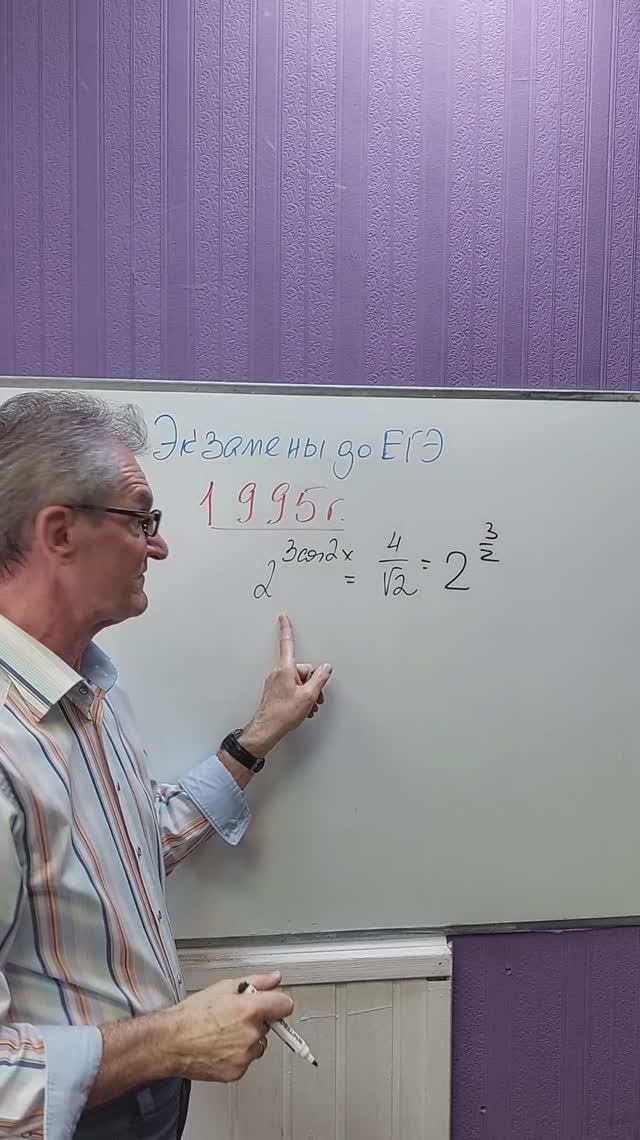 Экзамены до ЕГЭ
1995г.
2^{3cos2x} = \frac{4}{\sqrt{2}} = 2^{\frac{3}{2}}